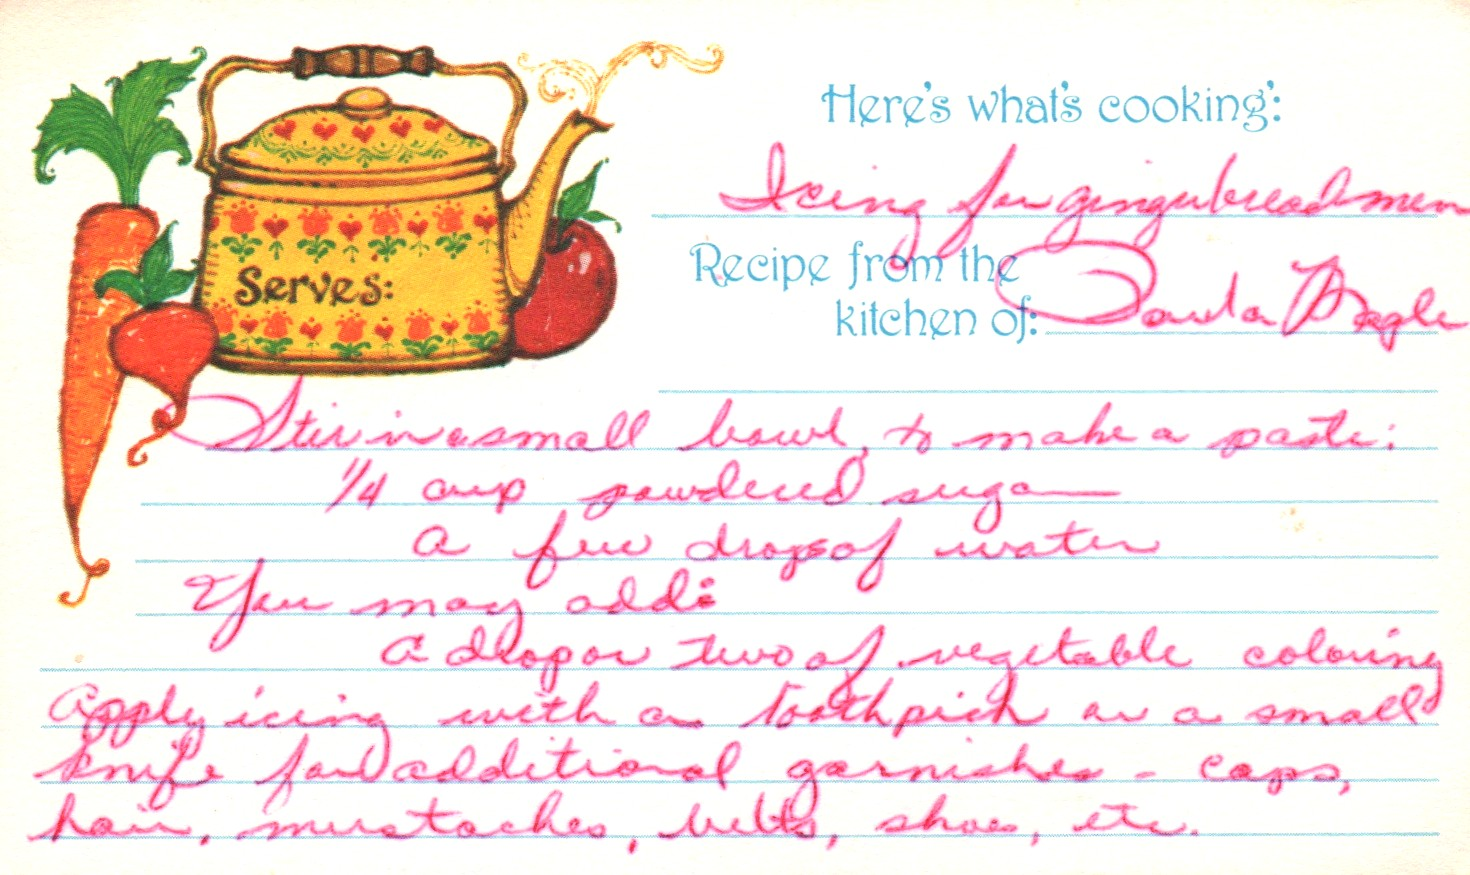 Here's what's cooking:
Icing for gingerbread men
Recipe from the
kitchen of: Paula
Serves:
Stir in a small bowl, to make a paste:
1/4 cup powdered sugar
a few drops of water
You may add:
A drop or two of vegetable coloring
Apply icing with a toothpick or a small
knife for additional garnishes - caps,
hair, mustaches, belts, shoes, etc.